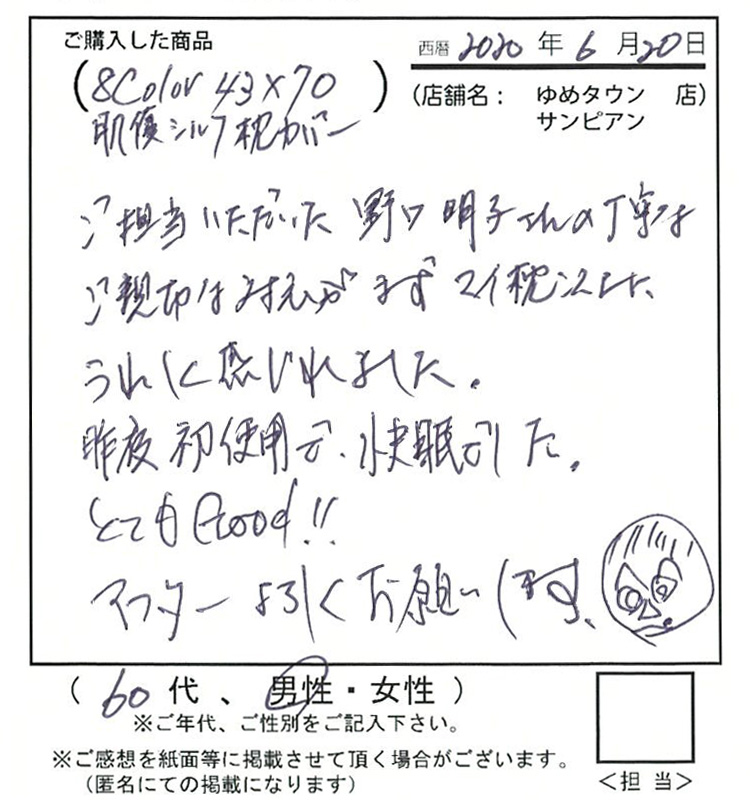 ご購入した商品
西暦 2020 年 6 月 20 日
(8Color 43×70
肌優シルク枕カバー)
(店舗名: ゆめタウン 店)
サンピアン
ご担当いただいた 野口 明子さんの丁寧な
ご親切な まずマイ枕
うれしく感じれました。
昨夜初使用で、快眠でした。
とてもGood!!
アフターよろしくお願いします、
( 60 代、男性・女性 )
※ご年代、ご性別をご記入下さい。
※ご感想を紙面等に掲載させて頂く場合がございます。
(匿名にての掲載になります)
<担 当>